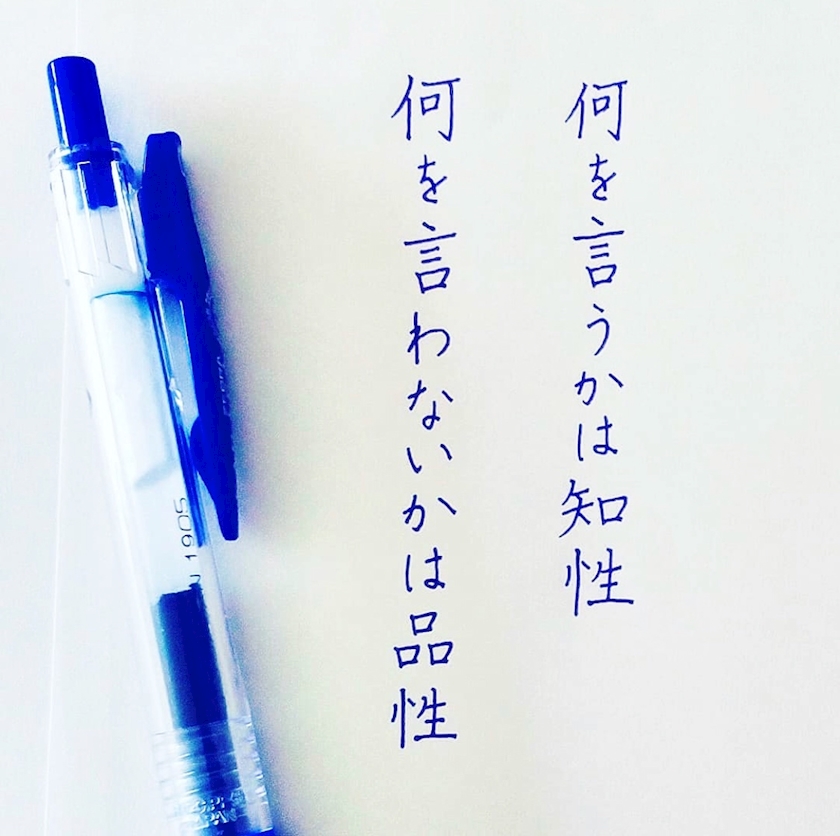 何を言うかは知性
何を言わないかは品性
1905